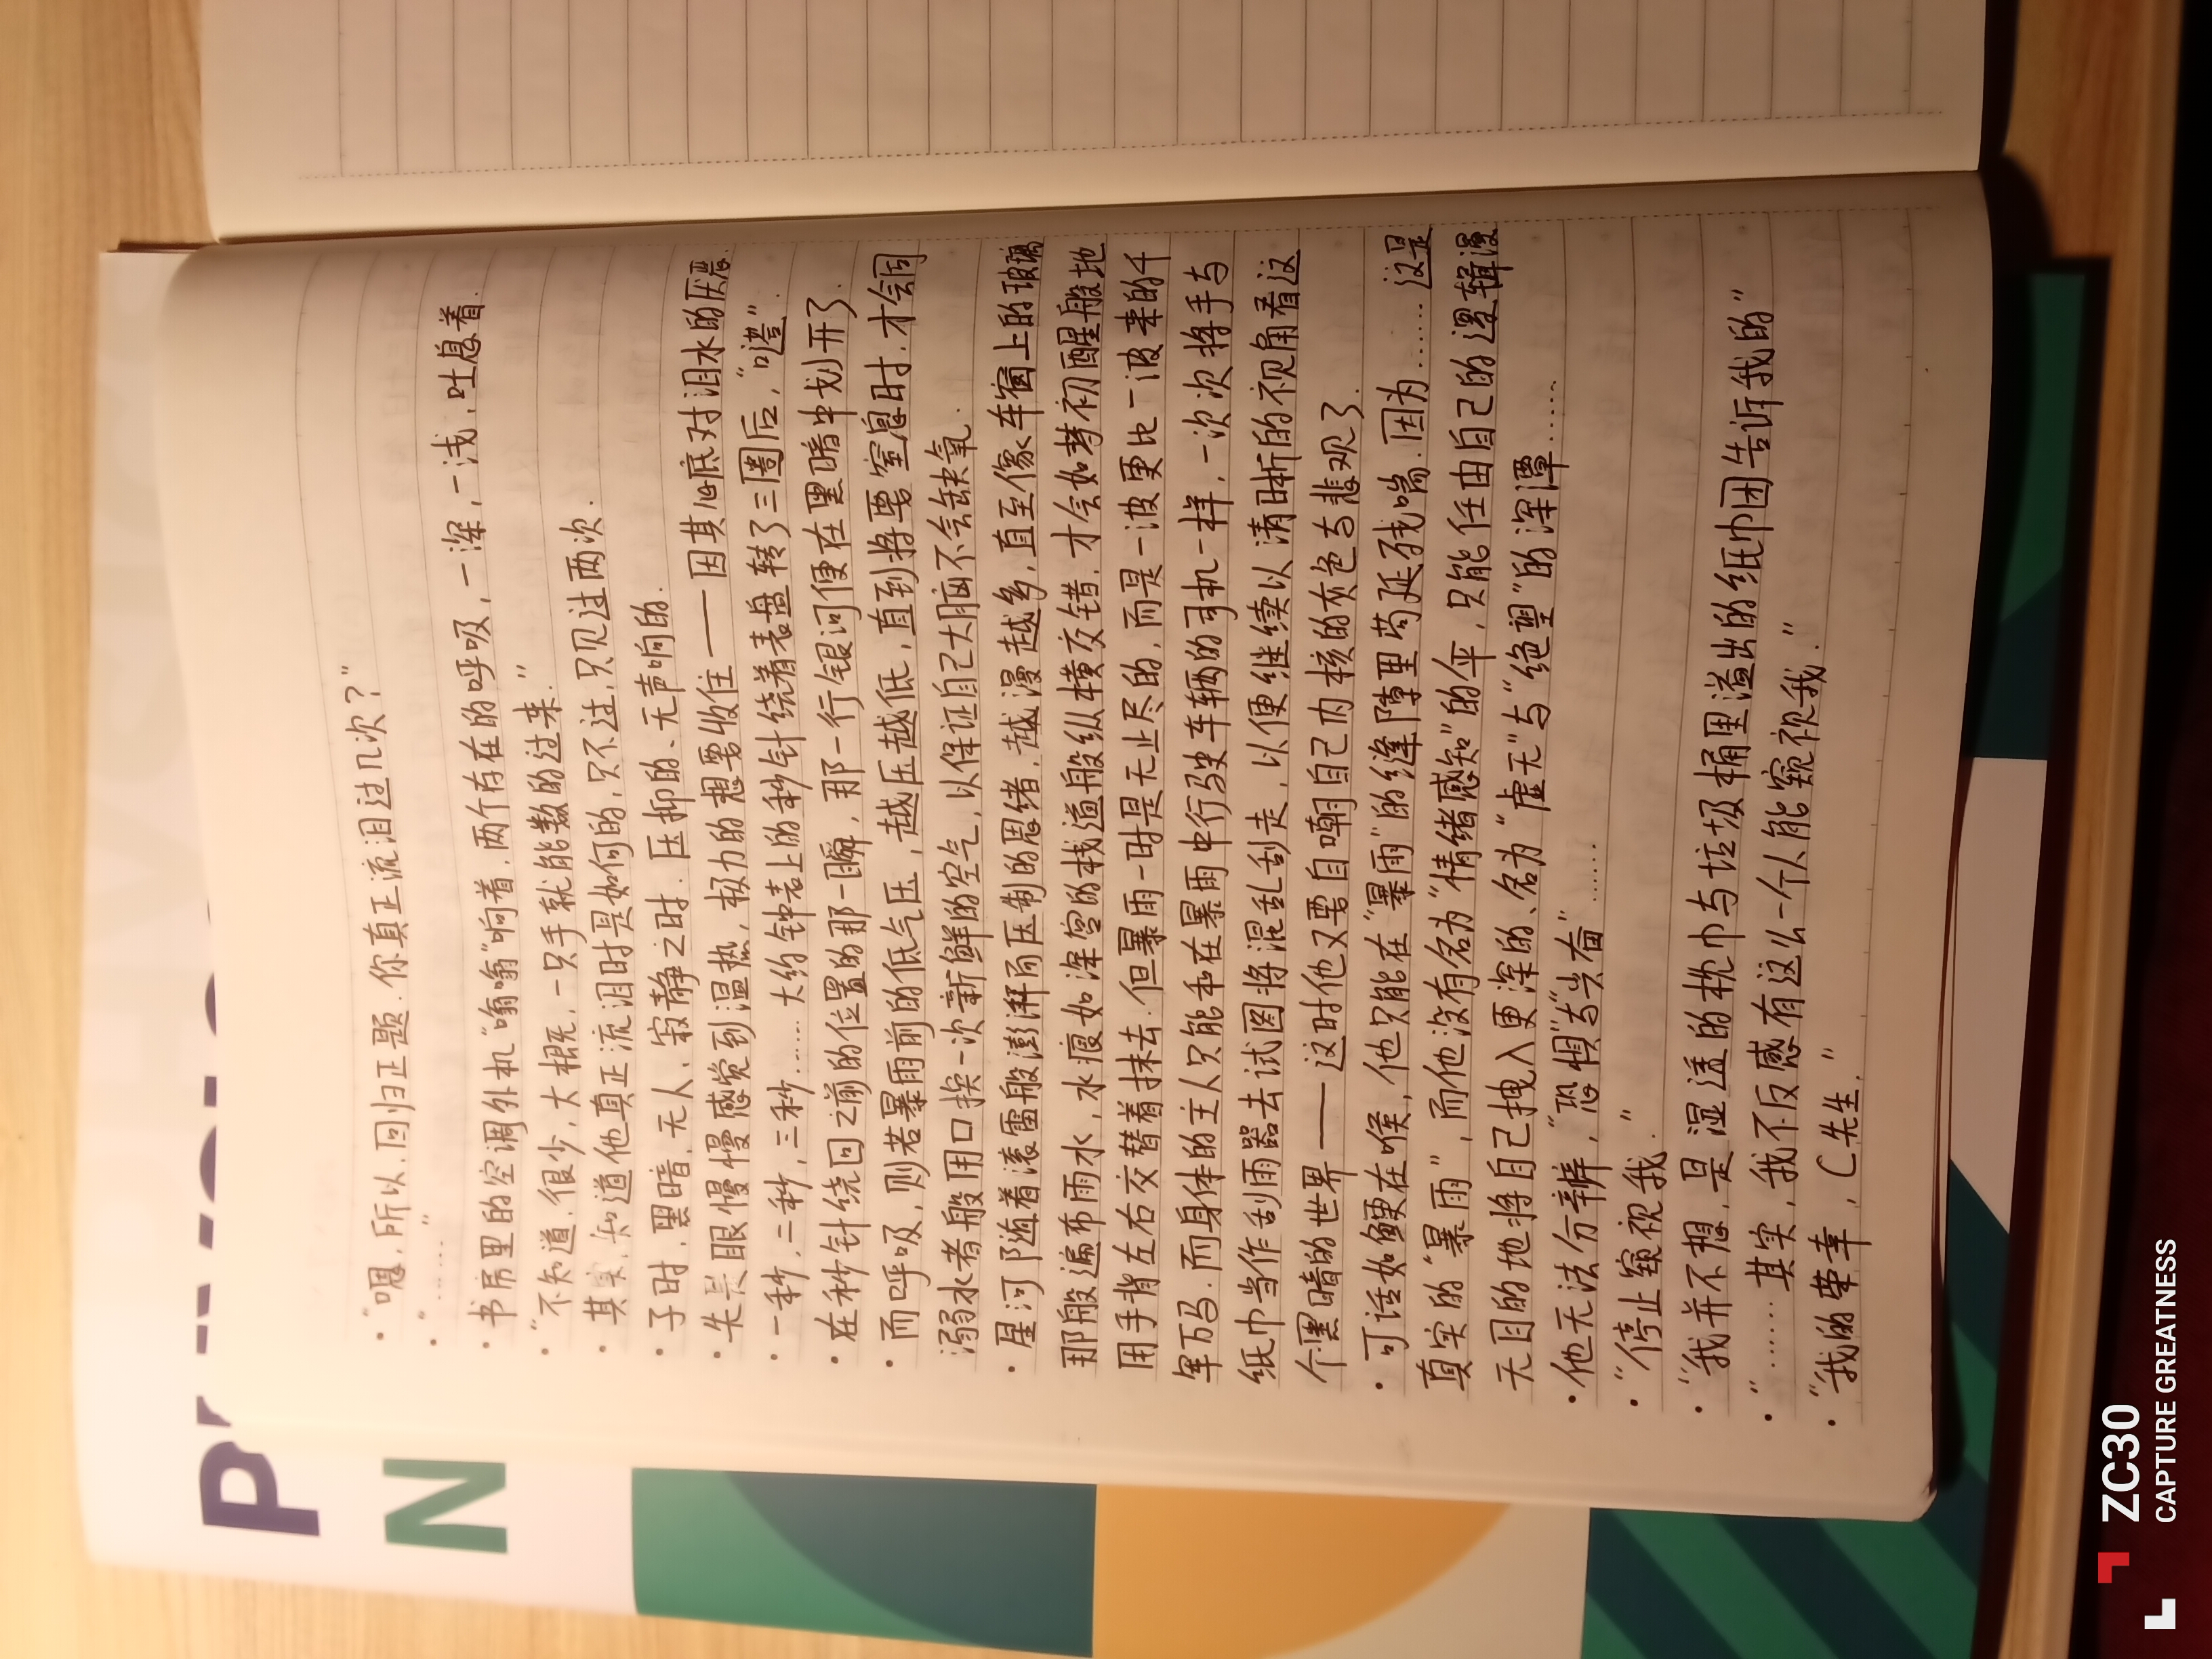 ·“嗯，所以，回归正题.你真正流泪过几次？”
·“……”
·书房里的空调外机“嗡嗡”响着.两个存在的呼吸，一深，一浅，吐息着.
·“不知道.很少，大概，一只手就能数的过来.”
·其实，知道他真正流泪时是如何的，只不过，只见过两次.
·子时，黑暗、无人、寂静之时.压抑的、无声响的.
·先是眼慢慢感觉到温热，极力的想要收住——因其心底对泪水的厌恶.
·一秒，二秒，三秒……大约钟表上的秒针绕着表盘转了三圈后，“嗒”.
·在秒针绕回之前的位置的那一瞬，那一行银河便在黑暗中划开了.
·而呼吸，则若暴雨前的低气压，越压越低，直到将要窒息时，才会同
溺水者般用口换一次新鲜的空气，以保证自己大脑不会缺氧.
·星河随着滚雷般澎湃而压制的思绪，越漫越多，直至像车窗上的玻璃
那般遍布雨水，水痕如深宫的栈道般纵横交错，才会如梦初醒般地
用手背左右交替着抹去.但暴雨一时是无止尽的，而是一波更比一波来的千
军万马.而身体的主人只能和在暴雨中行驶车辆的司机一样，一次次将手与
纸巾当作刮雨器去试图将混乱刮走，以便继续以清晰的视角看这
个黑暗的世界——这时他又要自嘲自己内核的灰色与悲观了.
·可话如鲠在喉，他只能在“暴雨”的缝隙里苟延残喘.因为……这是
真实的“暴雨”，而他没有名为“情绪感知”的伞，只能任由自己的逻辑漫
无目的地将自己拽入更深的、名为“虚无”与“绝望”的深潭……
·他无法分辨，“恐惧”与“兴奋”……
·“停止窥视我.”
·“我并不想，是湿透的枕巾与垃圾桶里溢出的纸巾团告诉我的”
·“……其实，我不反感有这么一个人能窥视我.”
·“我的荣幸，C先生.”
P
N
ZC30
CAPTURE GREATNESS